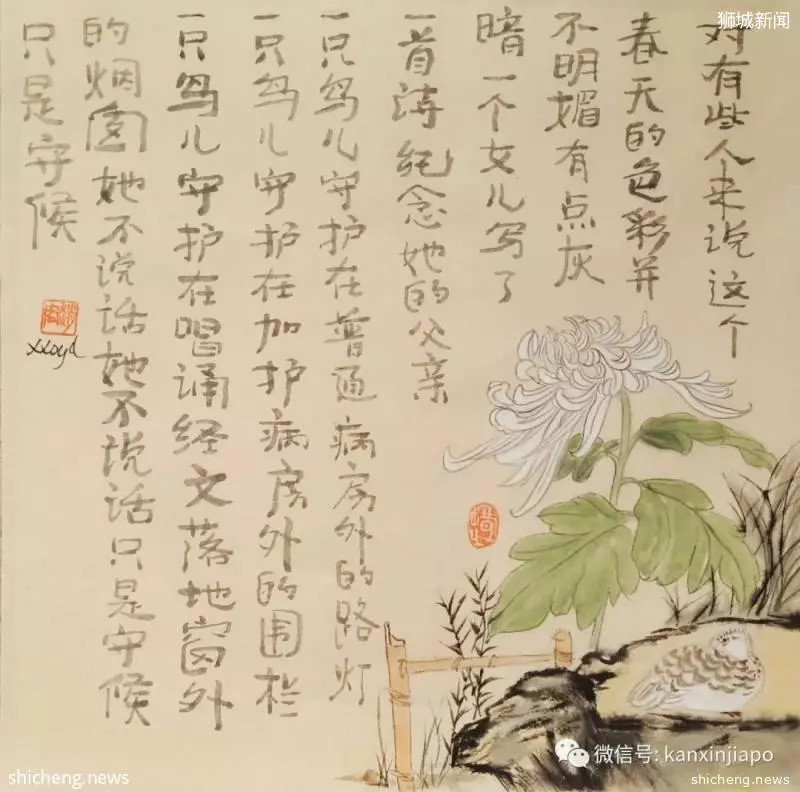 狮城新闻
对有些人来说这个
春天的色彩并
不明媚有点灰
暗一个女儿写了
一首诗纪念她的父亲
一只鸟儿守护在普通病房外的路灯
一只鸟儿守护在加护病房外的围栏
一只鸟儿守护在唱诵经文落地窗外
的烟囱她不说话她不说话只是守候
只是守候
微信号: kanxinjiapo
shicheng.news
shicheng.news